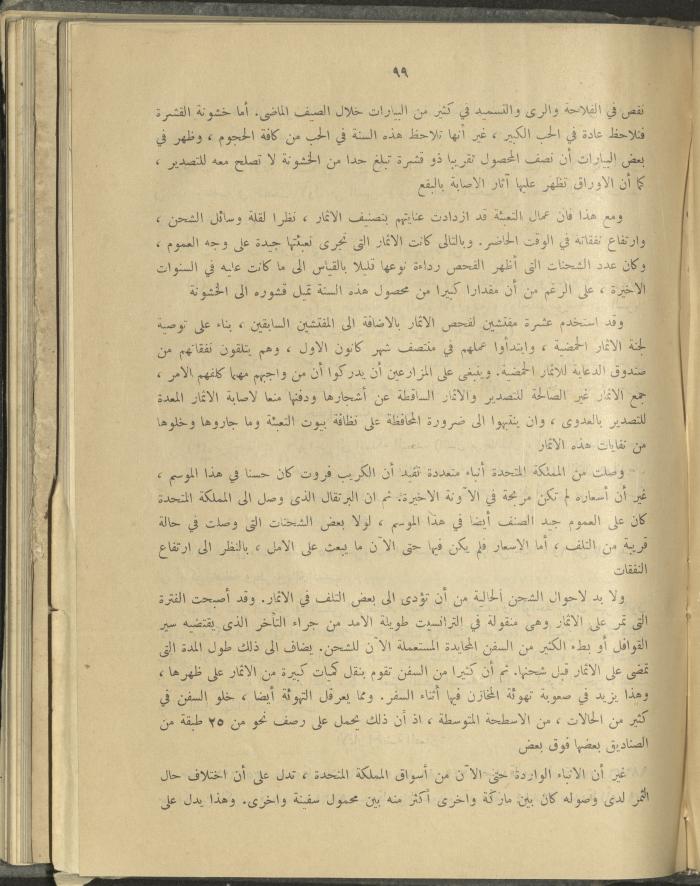 ٩٩
نقص في الفلاحة والري والتسميد في كثير من البيارات خلال الصيف الماضى. أما خشونة القشرة
فتلاحظ عادة في الحب الكبير ، غير أنها تلاحظ هذه السنة في الحب من كافة الحجوم ، وظهر في
بعض البيارات أن نصف المحصول تقريبا ذو قشرة تبلغ حدا من الخشونة لا تصلح معه للتصدير ،
كما أن الاوراق تظهر عليها آثار الاصابة بالبقع
ومع هذا فان عمال التعبئة قد ازدادت عنايتهم بتصنيف الاثمار ، نظرا لقلة وسائل الشحن ،
وارتفاع نفقاته في الوقت الحاضر. وبالتالى كانت الاثمار التى تجرى تعبئتها جيدة على وجه العموم ،
وكان عدد الشحنات التى أظهر الفحص رداءة نوعها قليلا بالقياس الى ما كانت عليه في السنوات
الاخيرة ، على الرغم من أن مقدارا كبيرا من محصول هذه السنة تميل قشوره الى الخشونة
وقد استخدم عشرة مفتشين لفحص الاثمار بالاضافة الى المفتشين السابقين ، بناء على توصية
لجنة الاثمار الحمضية ، وابتدأوا عملهم في منتصف شهر كانون الاول ، وهم يتلقون نفقاتهم من
صندوق الدعاية للاثمار الحمضية. وينبغى على المزارعين أن يدركوا أن من واجبهم مهما كلفهم الامر ،
جمع الاثمار غير الصالحة للتصدير والاثمار الساقطة عن أشجارها ودفنها منعا لاصابة الاثمار المعدة
للتصدير بالعدوى ، وان ينتبهوا الى ضرورة المحافظة على نظافة بيوت التعبئة وما جاورها وخلوها
من نفايات هذه الاثمار
وصلت من المملكة المتحدة أنباء متعددة تفيد أن الكريب فروت كان حسنا في هذا الموسم ،
غير أن أسعاره لم تكن مربحة في الآونة الاخيرة. ثم ان البرتقال الذى وصل الى المملكة المتحدة
كان على العموم جيد الصنف أيضا في هذا الموسم ، لولا بعض الشحنات التى وصلت في حالة
قريبة من التلف ، أما الاسعار فلم يكن فيها حتى الآن ما يبعث على الامل ، بالنظر الى ارتفاع
النفقات
ولا بد لاحوال الشحن الحالية من أن تؤدى الى بعض التلف في الاثمار. وقد أصبحت الفترة
التى تمر على الاثمار وهى منقولة في الترانسيت طويلة الامد من جراء التأخر الذى يقتضيه سير
القوافل أو بطء الكثير من السفن المحايدة المستعملة الآن للشحن. يضاف الى ذلك طول المدة التى
تمضى على الاثمار قبل شحنها. ثم أن كثيرا من السفن تقوم بنقل كميات كبيرة من الاثمار على ظهرها ،
وهذا يزيد في صعوبة تهوئة المخازن فيها أثناء السفر. ومما يعرقل التهوئة أيضا ، خلو السفن في
كثير من الحالات ، من الاسطحة المتوسطة ، اذ أن ذلك يحمل على رصف نحو من ٢٥ طبقة من
الصناديق بعضها فوق بعض
غير أن الانباء الواردة حتى الآن من أسواق المملكة المتحدة ، تدل على أن اختلاف حال
الثمر لدى وصوله كان بين ماركة واخرى أكثر منه بين محمول سفينة واخرى. وهذا يدل على